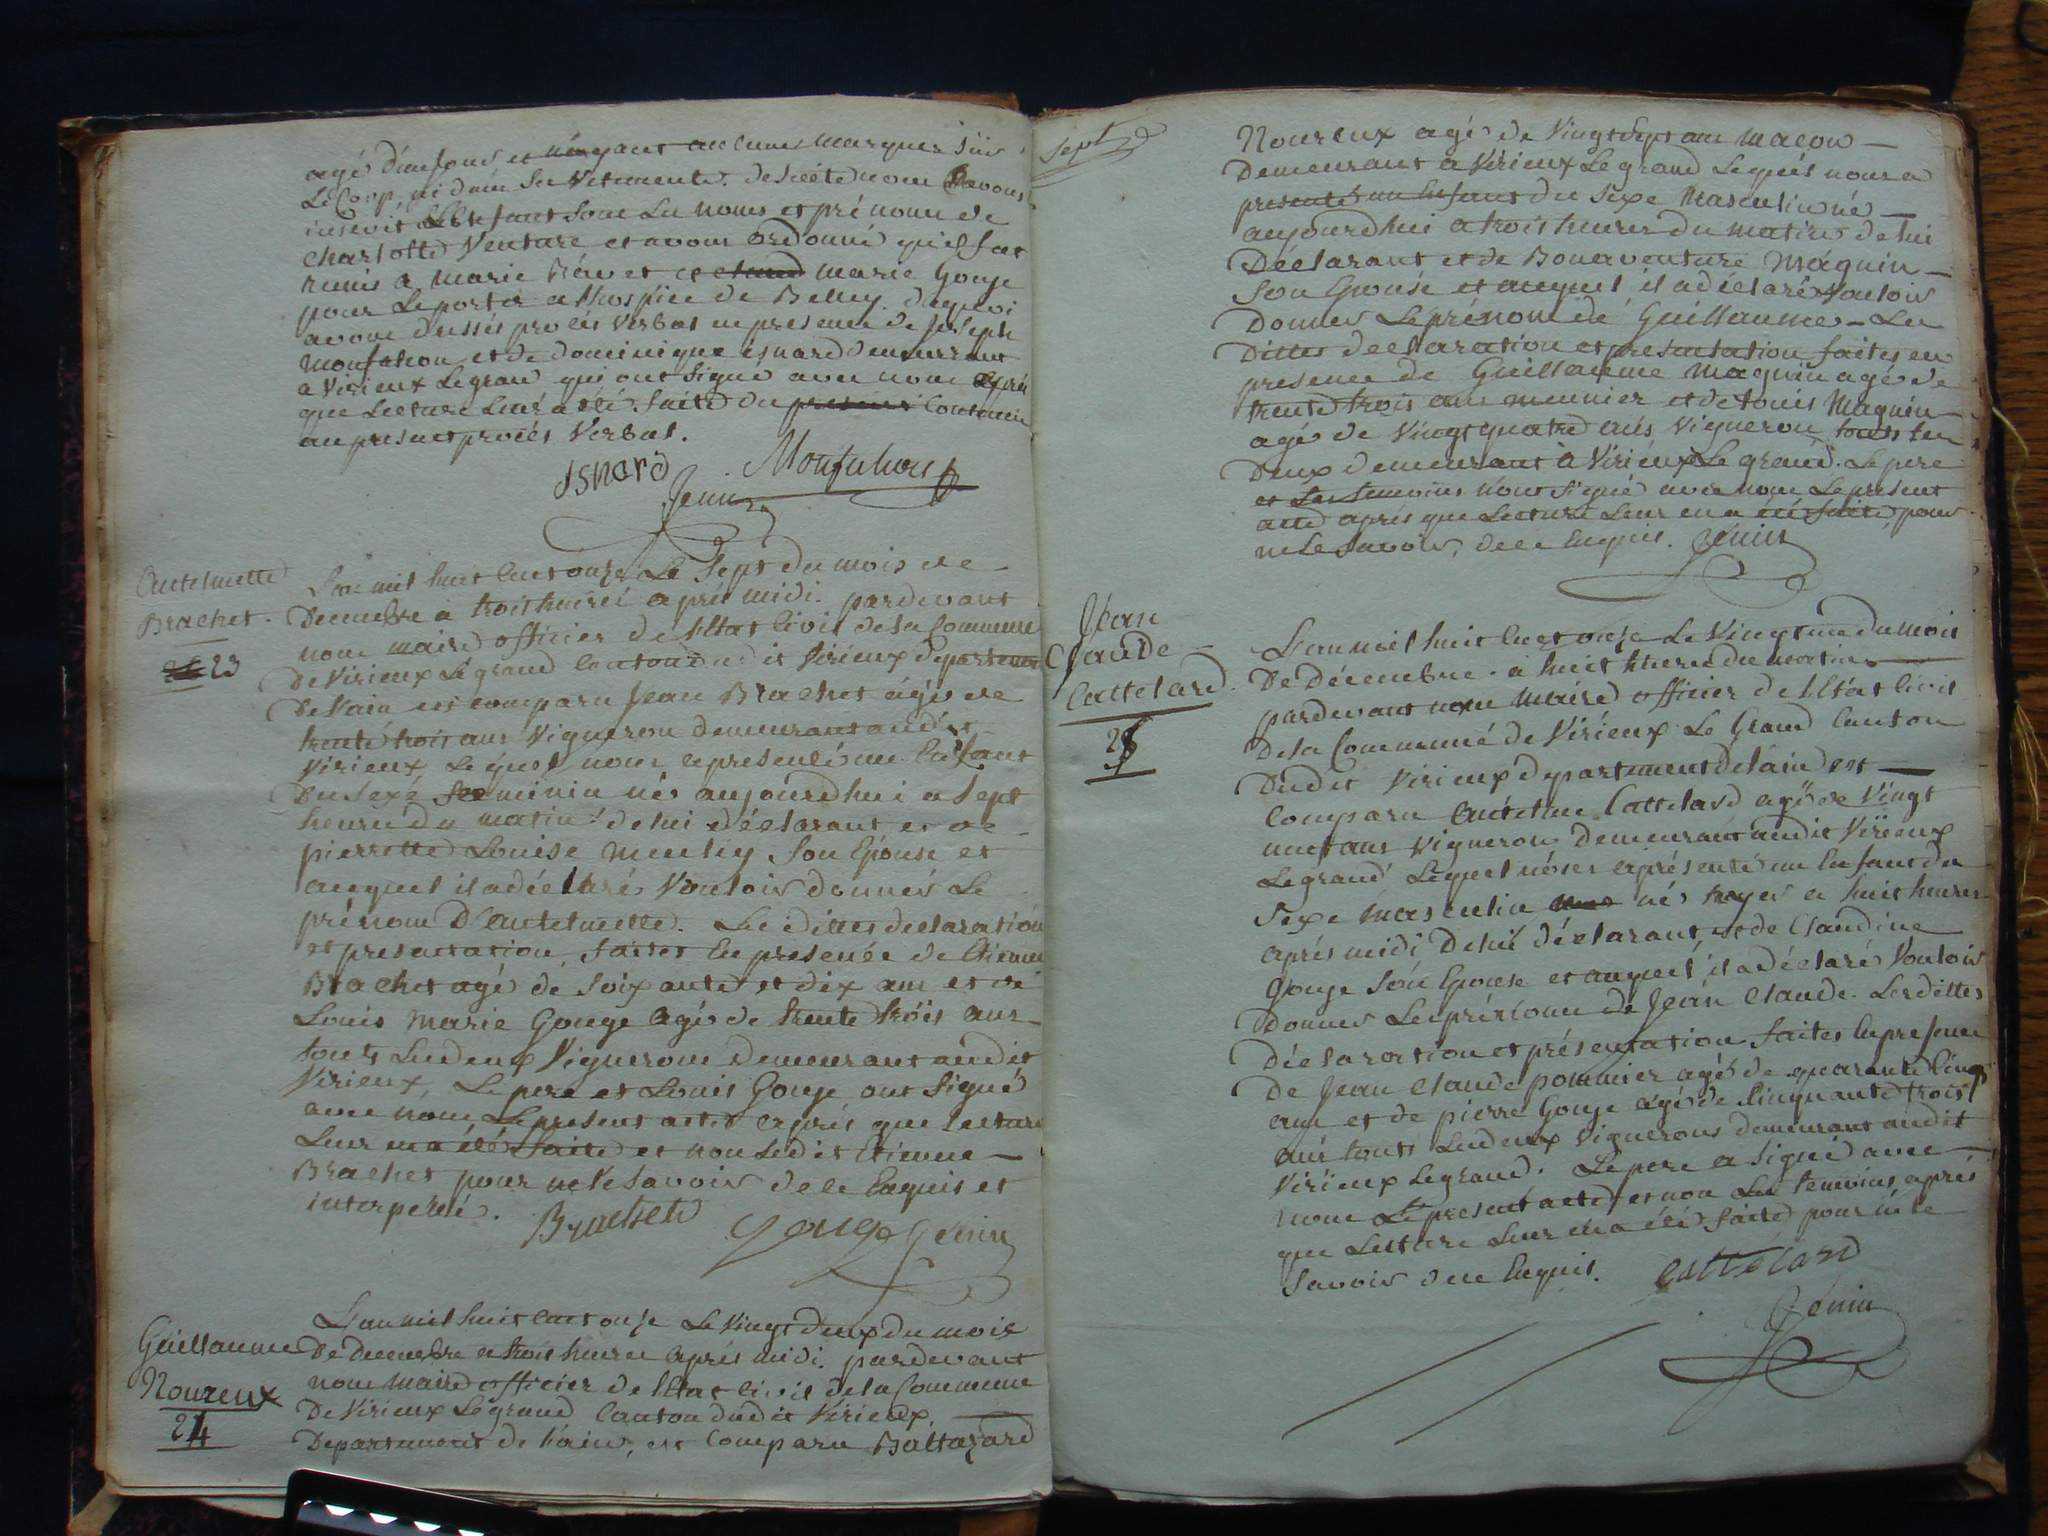 agé d'un jour et n'ayant aucunes marques sur
Le Corp, ni dans Ses Vetements. de suite nous avons
inscrit L'Enfant Sous Les noms et prénoms de
Charlotte Venture et avons ordonné qu'il fut
remis à marie et marie Gouge
pour Le porter a l'hospice de Belley. de quoi
avons dressés procès Verbal en presence de Joseph
Monfalcon et de dominique isnard demeurrant
a Virieux Le grand qui ont Signé avec nous après
que Lecture Leur a été faite du Contenu
au present procès Verbal.
Isnard Monfalcon
Jenin
Antelmette
Brachet.
23
L'an mil huit Cent onze Le Sept du mois de
Decembre à trois heures après midi. pardevant
nous maire officier de L'Etat Civil de La Commune
De Virieux Le grand Canton dudit Virieux departement
De L'ain est comparu Jean Brachet agé de
trente trois ans Vigneron demeurant audit
Virieux Lequel nous a presenté un Enfant
Du Sexe feminin né aujourdhui a Sept
heures du matin de lui déclarant et de
pierrette Louise Son Epouse et
auquel il a déclaré Vouloir donner Le
prénom D'Antelmette. Les dittes declaration
et presentation, faites En presence de Etienne
Brachet agé de Soixante et dix ans et de
Louis Marie Gouge agé de trente trois ans
touts Les deux Vignerons demeurant audit
Virieux, Le pere et Louis Gouge ont Signé
avec nous Le present acte après que Lecture
Leur en a été faite et non Ledit Etienne
Brachet pour ne le Savoir de ce Enquis et
interpellé.
Brachet Gouge Genin
Guillaume
Noureux
24
L'an mil huit Cent onze Le Vingt deux du mois
De Decembre a trois heures après midi. pardevant
nous Maire officier de L'Etat Civil de La Commune
De Virieux Le grand Canton dudit Virieux,
Departement de L'ain, est Comparu Baltazard
Sept
Noureux agé de Vingt Sept ans Maçon
Demeurant a Virieux Le grand Lequel nous a
presenté un Enfant du Sexe Masculin né
aujourdhui a trois heures du matin de lui
Déclarant et de Bonaventure Maguin
Son Epouse et auquel il a déclaré Vouloir
Donner Le prénom de Guillaume. Les
Dittes declaration et presentation faites en
presence de Guillaume Maguin agé de
trente trois ans meunier et de Louis Maguin
agé de Vingt quatre ans Vigneron touts Les
Deux demeurant à Virieux Le grand. Le pere
et Les temoins n'ont Signé avec nous Le present
acte après que Lecture Leur en a été faite, pour
ne Le Savoir, de ce Enquis. Génin
Jean
Claude
Cattelard
25
L'an mil huit Cent onze Le Vingt du mois
De Décembre. a huit heures du matin
pardevant nous Maire officier de L'Etat Civil
De La Commune de Virieux Le Grand Canton
Dudit Virieux departement de l'ain est
Comparu Antelme Cattelard agé de Vingt
ans Vigneron Demeurant audit Virieux
Le grand Lequel nous a présenté un Enfant du
Sexe Masculin né hyer a huit heures
après midi De lui déclarant et de Claudine
Gouge Son Epouse et auquel il a déclaré Vouloir
Donner Les prénoms de Jean Claude. Les dittes
Déclaration et présentation faites En presence
De Jean Claude pommier agé de quarante Cinq
ans et de pierre Gouge agé de Cinquante trois
ans touts Les deux Vignerons demeurant audit
Virieux Le grand. Le pere a Signé avec
nous Le present acte et non Les temoins après
que Lecture Leur en a été faite pour ne le
Savoir de ce Enquis. Cattelard
Génin